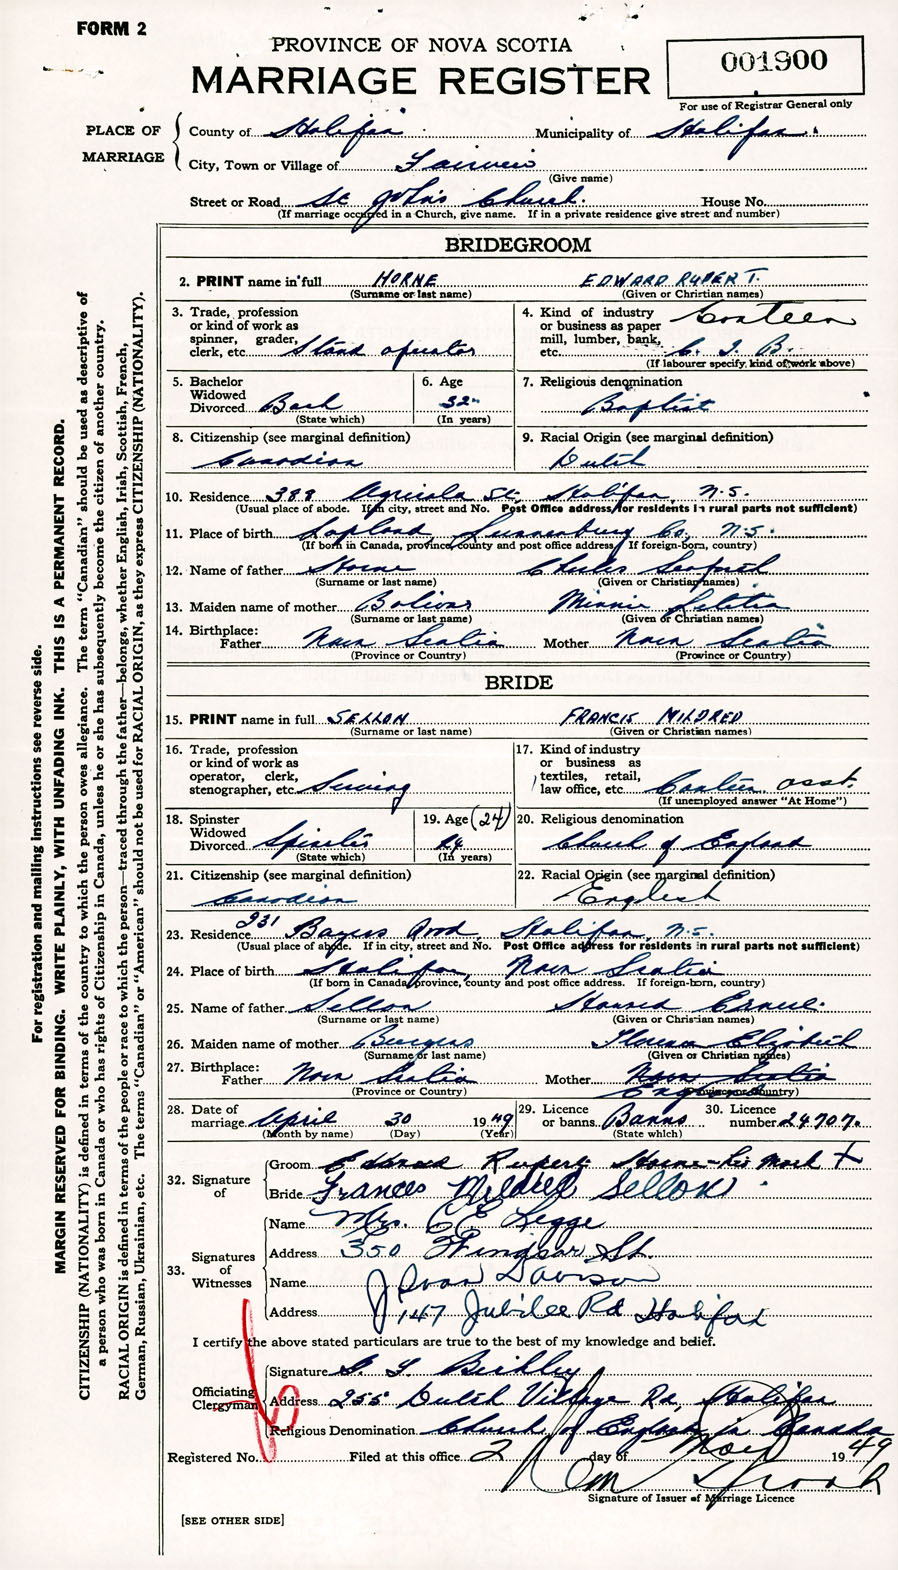 FORM 2
PROVINCE OF NOVA SCOTIA
MARRIAGE REGISTER
001900
For use of Registrar General only
PLACE OF MARRIAGE
County of Halifax Municipality of Halifax
City, Town or Village of Fairview
(Give name)
Street or Road St John's Church. House No.
(If marriage occurred in a Church, give name. If in a private residence give street and number)
BRIDEGROOM
2. PRINT name in full HORNE EDWARD RUPERT.
(Surname or last name) (Given or Christian names)
3. Trade, profession or kind of work as spinner, grader, clerk, etc. Stand operator
4. Kind of industry or business as paper mill, lumber, bank, etc. Canteen
(If labourer specify kind of work above)
5. Bachelor Widowed Divorced Bach
(State which)
6. Age 32
(In years)
7. Religious denomination Baptist
8. Citizenship (see marginal definition) Canadian
9. Racial Origin (see marginal definition) Dutch
10. Residence 388 Agricola St. Halifax, N.S.
(Usual place of abode. If in city, street and No. Post Office address for residents in rural parts not sufficient)
11. Place of birth Lapland, Lunenburg Co., N.S.
(If born in Canada, province, county and post office address. If foreign-born, country)
12. Name of father Horne Charles Seaford
(Surname or last name) (Given or Christian names)
13. Maiden name of mother Bolivar Minnie Letitia
(Surname or last name) (Given or Christian names)
14. Birthplace: Father Nova Scotia Mother Nova Scotia
(Province or Country) (Province or Country)
BRIDE
15. PRINT name in full SELLON FRANCIS MILDRED
(Surname or last name) (Given or Christian names)
16. Trade, profession or kind of work as operator, clerk, stenographer, etc. Serving
17. Kind of industry or business as textiles, retail, law office, etc. Canteen asst.
(If unemployed answer "At Home")
18. Spinster Widowed Divorced Spinster
(State which)
19. Age (24) 24
(In years)
20. Religious denomination Church of England
21. Citizenship (see marginal definition) Canadian
22. Racial Origin (see marginal definition) English
23. Residence 231 Bayers Road, Halifax, N.S.
(Usual place of abode. If in city, street and No. Post Office address for residents in rural parts not sufficient)
24. Place of birth Halifax, Nova Scotia
(If born in Canada, province, county and post office address. If foreign-born, country)
25. Name of father Sellon Howard Ernest.
(Surname or last name) (Given or Christian names)
26. Maiden name of mother Burgess Florence Elizabeth
(Surname or last name) (Given or Christian names)
27. Birthplace: Father Nova Scotia Mother Nova Scotia England
(Province or Country) (Province or Country)
28. Date of marriage April 30 1949
(Month by name) (Day) (Year)
29. Licence or banns Banns
(State which)
30. Licence number 24707.
32. Signature of
Groom Edward Rupert Horne - his mark X
Bride Frances Mildred Sellon
33. Signatures of Witnesses
Name Mrs. C E Legge
Address 350 Windsor St.
Name J Ivan Davison
Address 147 Jubilee Rd Halifax
I certify the above stated particulars are true to the best of my knowledge and belief.
Officiating Clergyman
Signature
Address 255 Dutch Village Rd, Halifax
Religious Denomination Church of England in Canada
Registered No. Filed at this office 2 day of May 1949
Signature of Issuer of Marriage Licence
[SEE OTHER SIDE]
For registration and mailing instructions see reverse side.
MARGIN RESERVED FOR BINDING. WRITE PLAINLY, WITH UNFADING INK. THIS IS A PERMANENT RECORD.
CITIZENSHIP (NATIONALITY) is defined in terms of the country to which the person owes allegiance. The term "Canadian" should be used as descriptive of
a person who was born in Canada or who has rights of Citizenship in Canada, unless he or she has subsequently become the citizen of another country.
RACIAL ORIGIN is defined in terms of the people or race to which the person—traced through the father—belongs, whether English, Irish, Scottish, French,
German, Russian, Ukrainian, etc. The terms "Canadian" or "American" should not be used for RACIAL ORIGIN, as they express CITIZENSHIP (NATIONALITY).